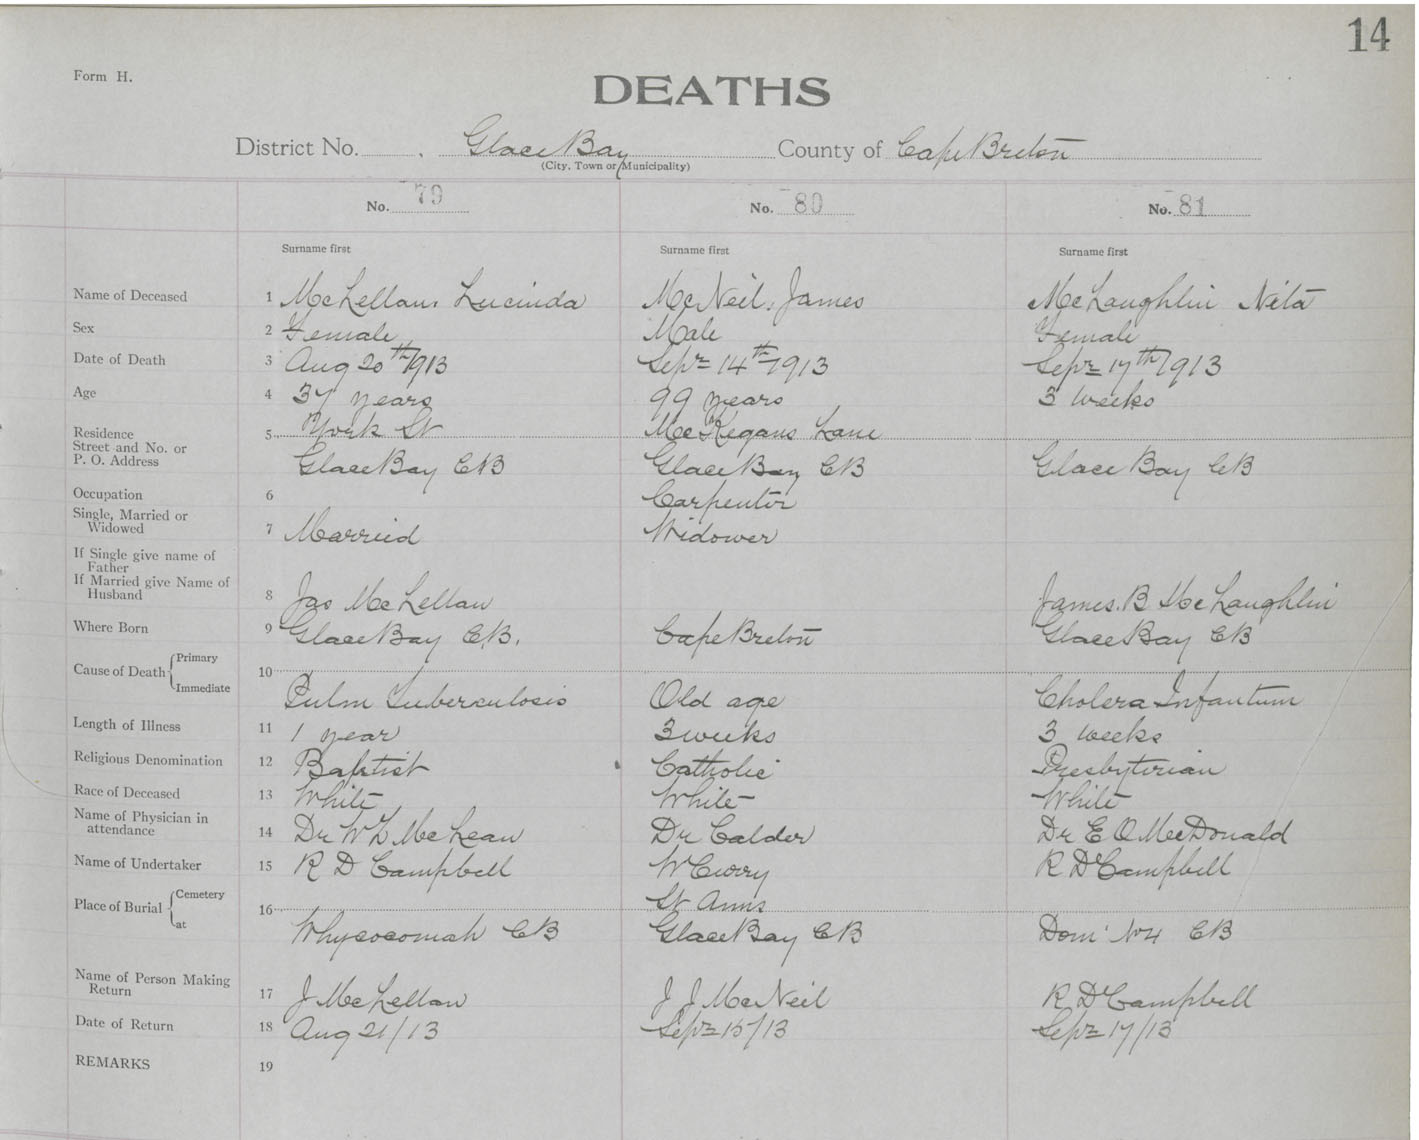 14
Form H.
DEATHS
District No. , Glace Bay County of Cape Breton
(City, Town or Municipality)
No. 79 No. 80 No. 81
Surname first Surname first Surname first
Name of Deceased 1 McLellan, Lucinda McNeil, James McLaughlin Nita
Sex 2 Female Male Female
Date of Death 3 Aug 20th 1913 Sept 14th 1913 Sept 17th 1913
Age 4 37 years 99 years 3 weeks
Residence 5 York St McKegans Lane
Street and No. or
P. O. Address Glace Bay CB Glace Bay CB Glace Bay CB
Occupation 6 Carpentor
Single, Married or
Widowed 7 Married Widower
If Single give name of
Father
If Married give Name of
Husband 8 Jas McLellan James. B McLaughlin
Where Born 9 Glace Bay C.B. Cape Breton Glace Bay CB
Cause of Death Primary 10
Immediate Pulm Tuberculosis Old age Cholera Infantum
Length of Illness 11 1 year 3 weeks 3 weeks
Religious Denomination 12 Baptist Catholic Presbyterian
Race of Deceased 13 White White White
Name of Physician in
attendance 14 Dr W L McLean Dr Calder Dr E O MacDonald
Name of Undertaker 15 R D Campbell W Curry R D Campbell
Place of Burial Cemetery 16 St Anns
at Whycocomah CB Glace Bay CB Dom No 4 CB
Name of Person Making
Return 17 J McLellan J J McNeil R D Campbell
Date of Return 18 Aug 21/13 Sept 15/13 Sept 17/13
REMARKS 19